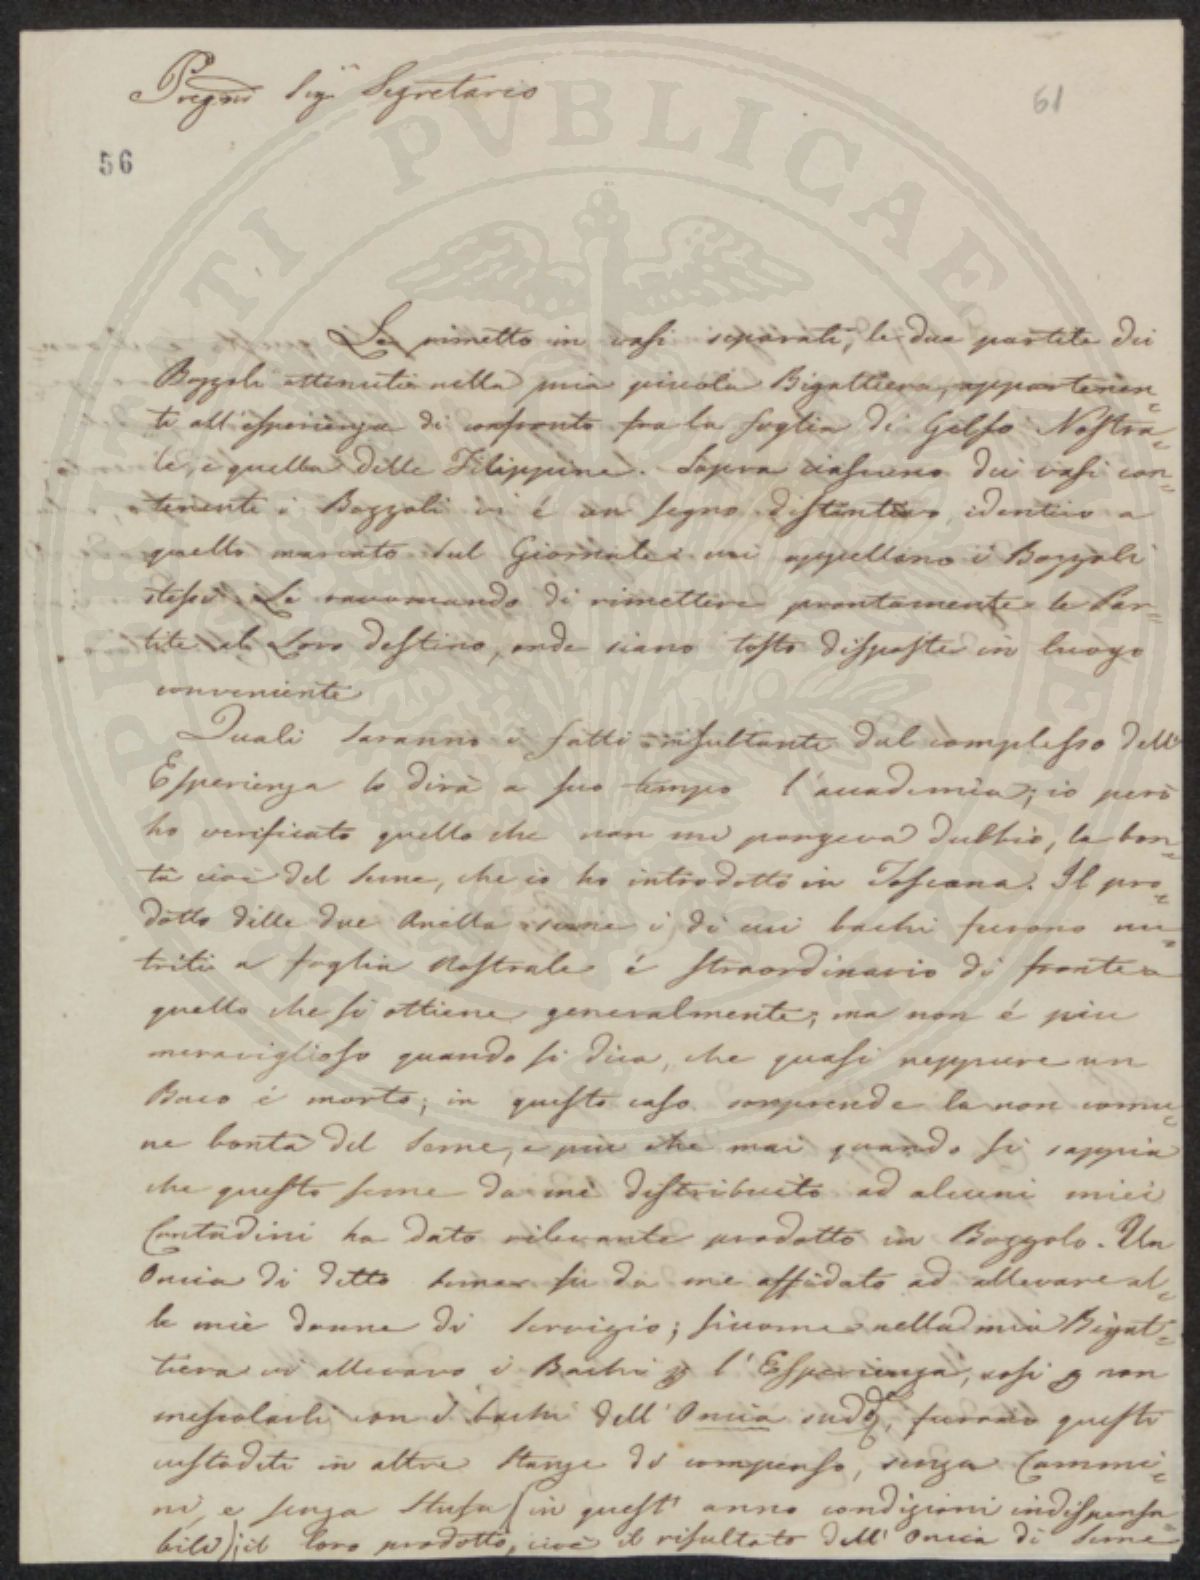 Pregmo Sigr Segretario
61
56
Le rimetto in vasi separati, le due partite dei
Bozzoli ottenuti nella mia piccola Bigattiera, appartenen=
ti all'esperienza di confronto fra la foglia di Gelso Nostra=
le, e quella delle Filippine. Sopra ciascuno dei vasi con=
tenente i Bozzoli vi é un segno distintivo identico a
quello marcato sul Giornale a cui appellano i Bozzoli
stessi. Le raccomando di rimettere prontamente le Par=
tite al Loro destino, onde siano tosto disposte in luogo
conveniente
Quali saranno i fatti risultanti dal complesso dell'
Esperienza lo dirà a suo tempo l'accademia; io però
ho verificato quello che non mi porgeva dubbio, la bon=
tà cioè del seme, che io ho introdotto in Toscana. Il pro=
dotto delle due Anella seme i di cui bachi furono nu=
triti a foglia nostrale é straordinario di fronte a
quello che si ottiene generalmente; ma non é piu
meraviglioso quando si dica, che quasi neppure un
Baco é morto; in questo caso sorprende la non comu=
ne bontà del seme, e piu che mai quando si sappia
che questo seme da me distribuito ad alcuni miei
Contadini ha dato rilevante prodotto in Bozzolo. Un
Oncia di detto seme fù da me affidato ad allevare al=
le mie donne di servizio; siccome nella mia Bigat=
tiera vi allevavo i Bachi p l'Esperienza, così p non
mescolarli con i bachi dell'Oncia sudda, furono questi
custoditi in altre stanze di compenso, senza Cammi=
ni, e senza Stufa (in quest'anno condizioni indispensa
bili); il loro prodotto, cioè il risultato dell'Oncia di Seme